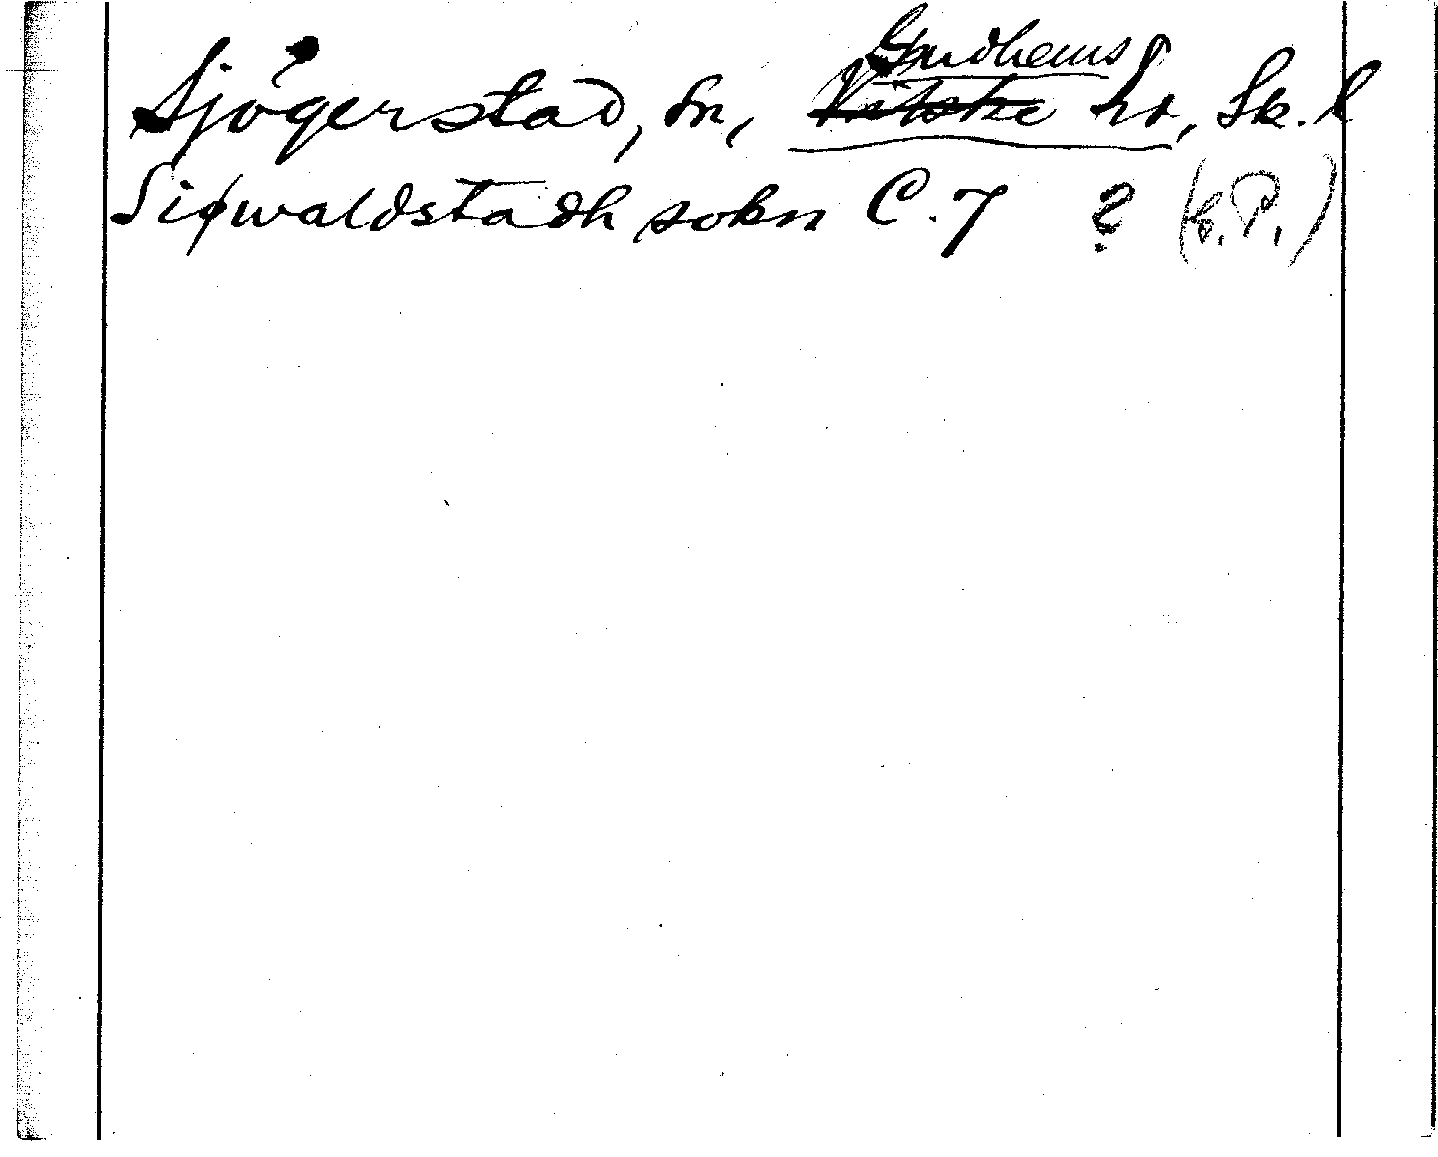 Sjögerstad, sn, Gudhems hd, Sk. l
Sigwaldstadh sokn C. 7 ? (K.P.)